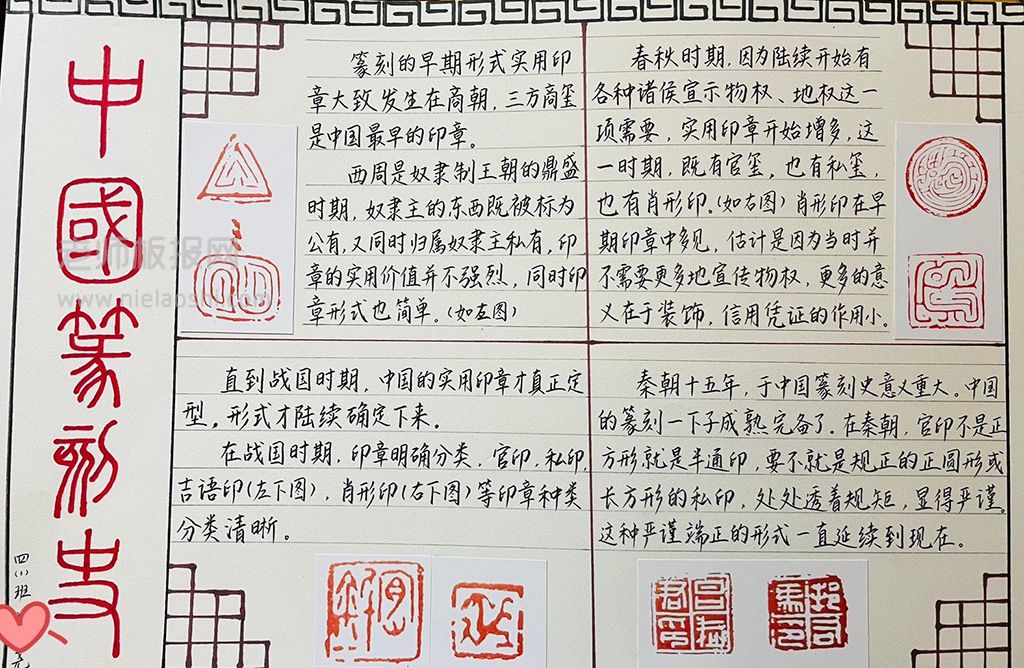 中國篆刻史
篆刻的早期形式实用印
章大致发生在商朝，三方商玺
是中国最早的印章。
西周是奴隶制王朝的鼎盛
时期，奴隶主的东西既被标为
公有，又同时归属奴隶主私有，印
章的实用价值并不强烈，同时印
章形式也简单。（如左图）
春秋时期，因为陆续开始有
各种诸侯宣示物权、地权这一
项需要，实用印章开始增多，这
一时期，既有官玺，也有私玺，
也有肖形印。（如右图）肖形印在早
期印章中多见，估计是因为当时并
不需要更多地宣传物权，更多的意
义在于装饰，信用凭证的作用小。
直到战国时期，中国的实用印章才真正定
型。形式才陆续确定下来。
在战国时期，印章明确分类，官印，私印，
吉语印（左下图），肖形印（右下图）等印章种类
分类清晰。
秦朝十五年，于中国篆刻史意义重大。中国
的篆刻一下子成熟完备了。在秦朝，官印不是正
方形就是半通印，要不就是规正的正圆形或
长方形的私印，处处透着规矩，显得严谨。
这种严谨端正的形式一直延续到现在。
四（1）班
老师板报网